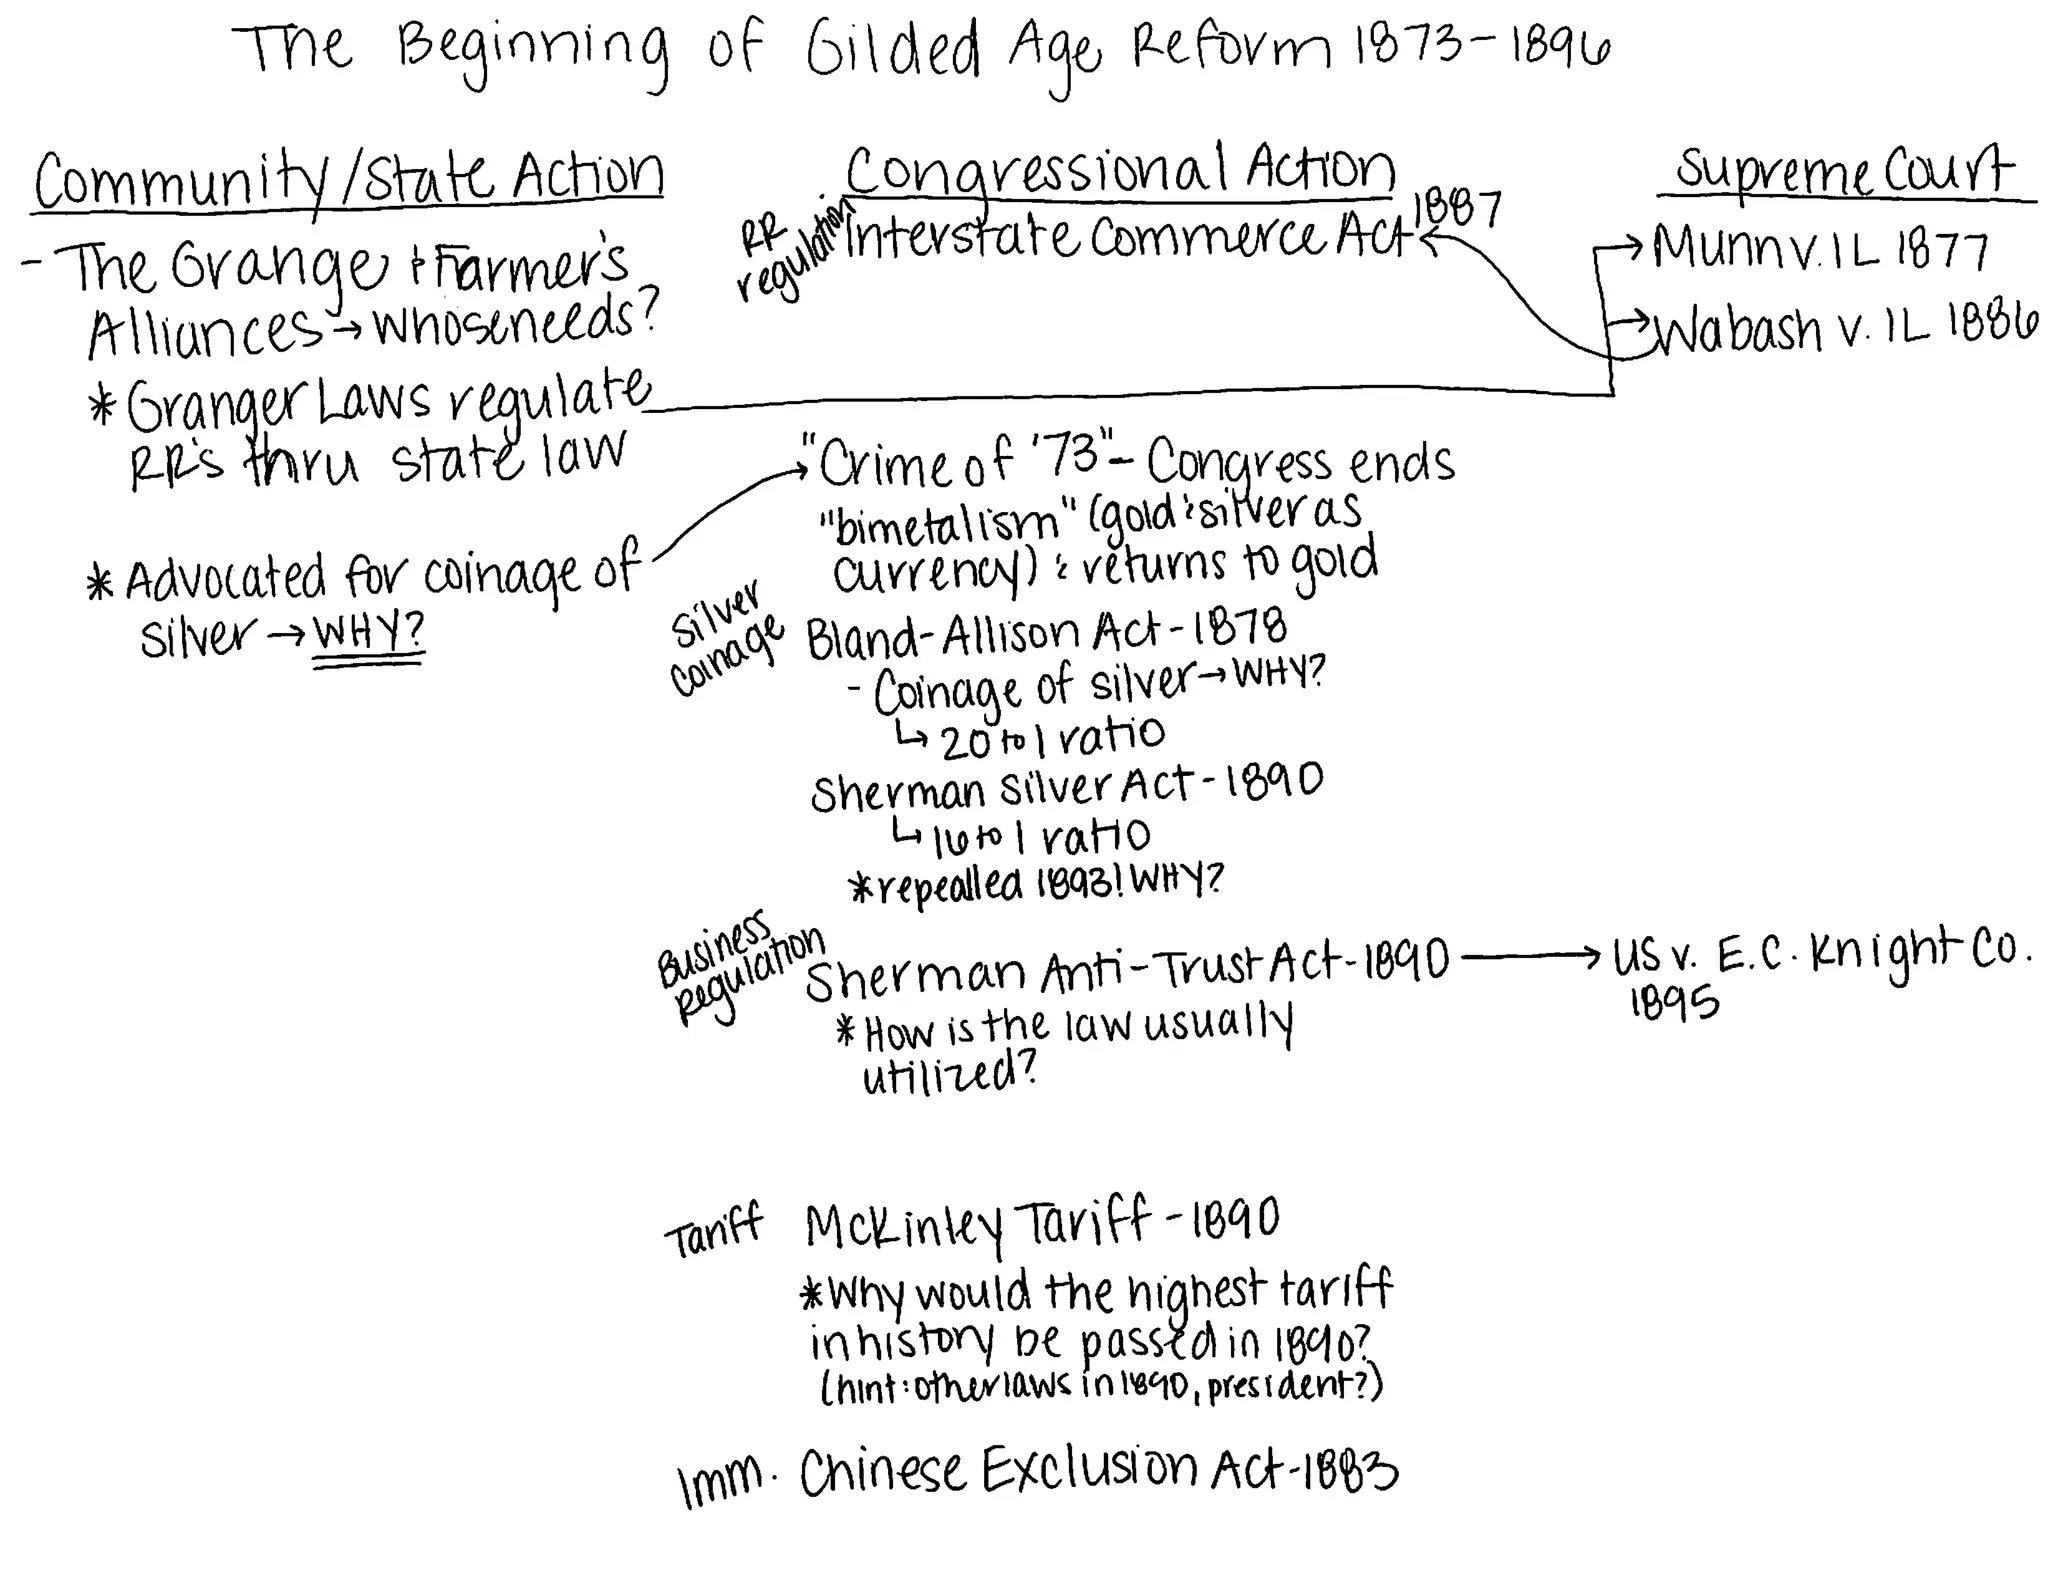 The Beginning of Gilded Age Reform 1873-1896
Community/State Action
- The Grange & Farmer's
Alliances → Whose needs?
* Granger Laws regulate
RR's thru state law
* Advocated for coinage of
silver → WHY?
Congressional Action
RR
regulation
Interstate Commerce Act 1887
"Crime of '73" - Congress ends
"bimetalism" (gold & silver as
currency) & returns to gold
Silver
Coinage
Bland-Allison Act - 1878
- Coinage of silver → WHY?
↳ 20 to 1 ratio
Sherman Silver Act - 1890
↳ 16 to 1 ratio
* repealled 1893! WHY?
Business
Regulation
Sherman Anti-Trust Act - 1890
* How is the law usually
utilized?
Tariff
McKinley Tariff - 1890
* Why would the highest tariff
in history be passed in 1890?
(hint: other laws in 1890, president?)
Imm.
Chinese Exclusion Act - 1883
Supreme Court
Munn v. IL 1877
Wabash v. IL 1886
US v. E.C. Knight Co.
1895